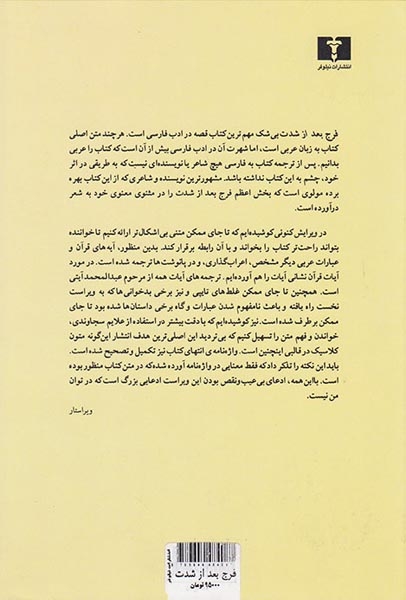 انتشارات نیلوفر
فرج بعد از شدت بی‌شک مهم ترین کتاب قصه در ادب فارسی است. هرچند متن اصلی
کتاب به زبان عربی است، اما شهرت آن در ادب فارسی بیش از آن است که کتاب را عربی
بدانیم. پس از ترجمه کتاب به فارسی هیچ شاعر یا نویسنده‌ای نیست که به طریقی در اثر
خود، چشم به این کتاب نداشته باشد. مشهورترین نویسنده و شاعری که از این کتاب بهره
برده مولوی است که بخش اعظم فرج بعد از شدت را در مثنوی معنوی خود به شعر
درآورده است.
در ویرایش کنونی کوشیده‌ایم که تا جای ممکن متنی بی‌اشکال‌تر ارائه کنیم تا خواننده
بتواند راحت‌تر کتاب را بخواند و با آن رابطه برقرار کند. بدین منظور، آیه‌های قرآن و
عبارات عربی دیگر مشخص، اعراب‌گذاری، و در پانوشت‌ها ترجمه شده است. در مورد
آیات قرآن نشانی آیات را هم آورده‌ایم. ترجمه‌های آیات همه از مرحوم عبدالمحمد آیتی
است. همچنین تا جای ممکن غلط‌های تایپی و نیز برخی بدخوانی‌ها که به ویراست
نخست راه یافته و باعث نامفهوم شدن عبارات و گاه برخی داستان‌ها شده بود تا جای
ممکن برطرف شده است. نیز کوشیده‌ایم که با دقت بیشتر در استفاده از علایم سجاوندی،
خواندن و فهم متن را تسهیل کنیم که بی‌تردید این اصلی‌ترین هدف انتشار این‌گونه متون
کلاسیک در قالبی اینچنین است. واژه‌نامه‌ی انتهای کتاب نیز تکمیل و تصحیح شده است.
باید این نکته را تذکر داد که فقط معنایی در واژه‌نامه آورده شده که در متن کتاب منظور بوده
است. با این همه، ادعای بی‌عیب‌ونقص بودن این ویراست ادعایی بزرگ است که در توان
من نیست.
ویراستار
فرج بعد از شدت
۹۵۰۰۰ تومان